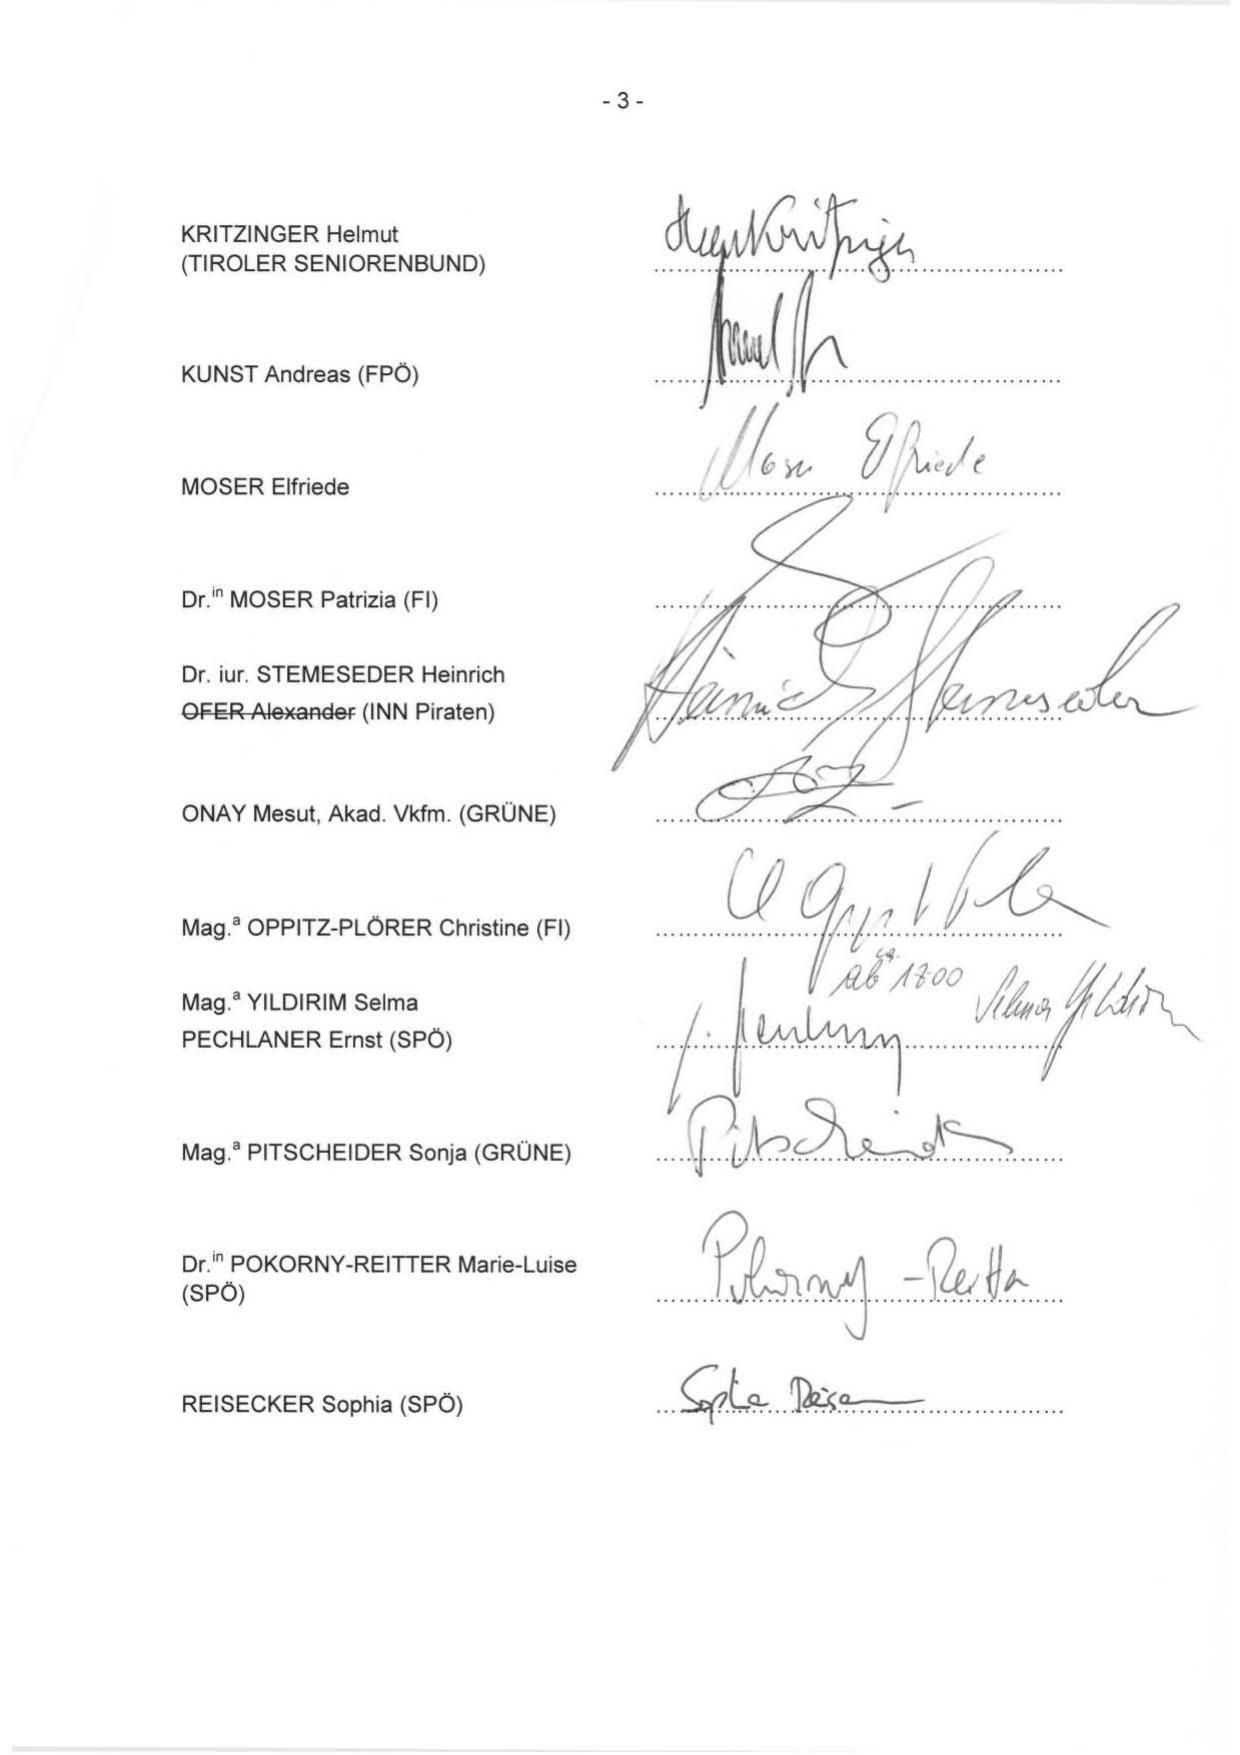 - 3 -
KRITZINGER Helmut
(TIROLER SENIORENBUND)
Kritzinger
KUNST Andreas (FPÖ)
MOSER Elfriede
Moser Elfriede
Dr.in MOSER Patrizia (FI)
Dr. iur. STEMESEDER Heinrich
Heinrich Stemeseder
OFER Alexander (INN Piraten)
ONAY Mesut, Akad. Vkfm. (GRÜNE)
Mag.a OPPITZ-PLÖRER Christine (FI)
ab ca. 18:00 Selma Yildirim
Mag.a YILDIRIM Selma
PECHLANER Ernst (SPÖ)
Mag.a PITSCHEIDER Sonja (GRÜNE)
Pitscheider
Dr.in POKORNY-REITTER Marie-Luise
(SPÖ)
Pokorny-Reitter
REISECKER Sophia (SPÖ)
Sophia